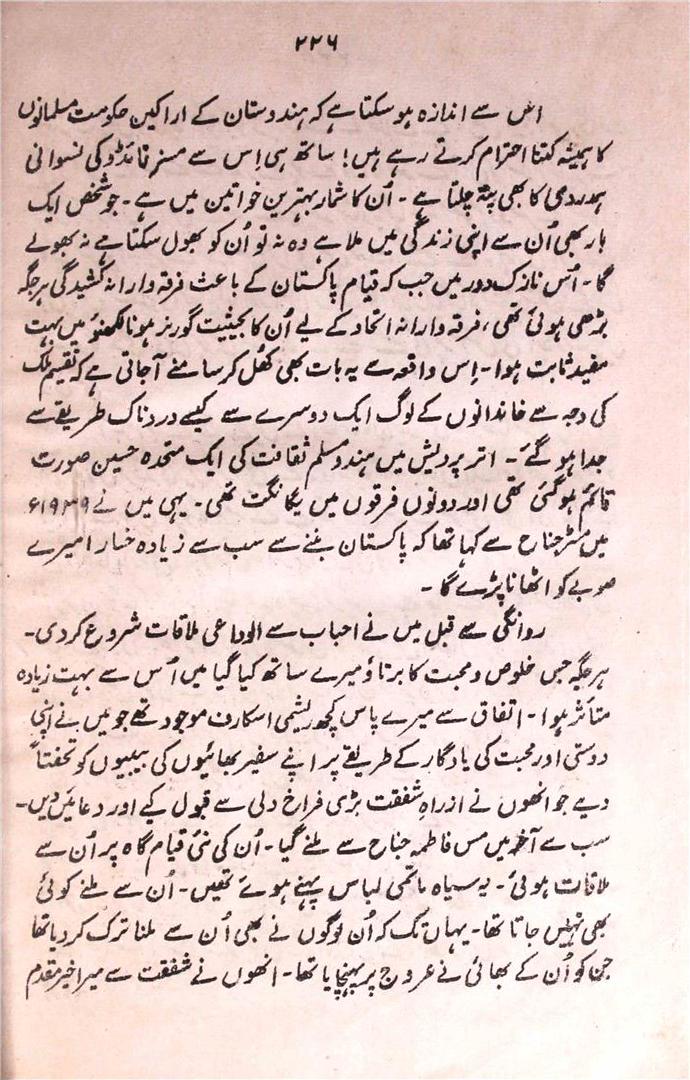 ۲۲۶
اس سے اندازہ ہو سکتا ہے کہ ہندوستان کے اراکین حکومت مسلمانوں
کا ہمیشہ کتنا احترام کرتے رہے ہیں! ساتھ ہی اِس سے مسز نائڈو کی نسوانی
ہمدردی کا بھی پتہ چلتا ہے ۔ اُن کا شمار بہترین خواتین میں ہے ۔ جو شخص ایک
بار بھی اُن سے اپنی زندگی میں ملا ہے وہ نہ تو اُن کو بھول سکتا ہے نہ بھولے
گا ۔ اُس نازک دور میں جب کہ قیام پاکستان کے باعث فرقہ وارانہ کشیدگی ہر جگہ
بڑھی ہوئی تھی ، فرقہ وارانہ اتحاد کے لیے اُن کا بحیثیت گورنر ہونا لکھنؤ میں بہت
مفید ثابت ہوا ۔ اِس واقعہ سے یہ بات بھی کُھل کر سامنے آجاتی ہے کہ تقسیم ملک
کی وجہ سے خاندانوں کے لوگ ایک دوسرے سے کیسے دردناک طریقے سے
جدا ہو گئے ۔ اتر پردیش میں ہندو مسلم ثقافت کی ایک متحدہ حسین صورت
قائم ہو گئی تھی اور دونوں فرقوں میں یگانگت تھی ۔ یہی میں نے ۱۹۳۹ء
میں مسٹر جناح سے کہا تھا کہ پاکستان بننے سے سب سے زیادہ خسارا میرے
صوبے کو اٹھانا پڑے گا ۔
روانگی سے قبل میں نے احباب سے الوداعی ملاقات شروع کر دی ۔
ہر جگہ جس خلوص و محبت کا برتاؤ میرے ساتھ کیا گیا میں اُس سے بہت زیادہ
متأثر ہوا ۔ اتفاق سے میرے پاس کچھ ریشمی اسکارف موجود تھے جو میں نے اپنی
دوستی اور محبت کی یادگار کے طریقے پر اپنے سفیر بھائیوں کی بیبیوں کو تحفتاً
دیے جو انھوں نے ازراہِ شفقت بڑی فراخ دلی سے قبول کیے اور دعائیں دیں ۔
سب سے آخر میں مس فاطمہ جناح سے ملنے گیا ۔ اُن کی نئی قیام گاہ پر اُن سے
ملاقات ہوئی ۔ یہ سیاہ ماتمی لباس پہنے ہوئے تھیں ۔ اُن سے ملنے کوئی
بھی نہیں جاتا تھا ۔ یہاں تک کہ اُن لوگوں نے بھی اُن سے ملنا ترک کر دیا تھا
جن کو اُن کے بھائی نے عروج پر پہنچایا تھا ۔ انھوں نے شفقت سے میرا خیر مقدم